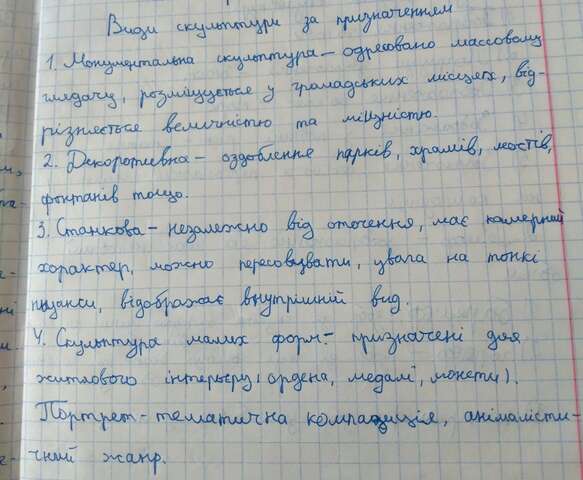 Види скульптури за призначенням
1. Монументальна скульптура – одресовано массовому
глядачу, розміщується у громадських місцях, від-
різняється величністю та міцністю.
2. Декоративна – оздоблення парків, храмів, мостів,
фонтанів тощо.
3. Станкова – незалежно від оточення, має камерний
характер, можно пересовувати, увага на тонкі
нюанси, відображає внутрішній вид.
4. Скульптура малих форм – призначені для
житлового інтерьеру (ордена, медалі, монети).
Портрет – тематична композиція, анімалісти-
чний жанр.